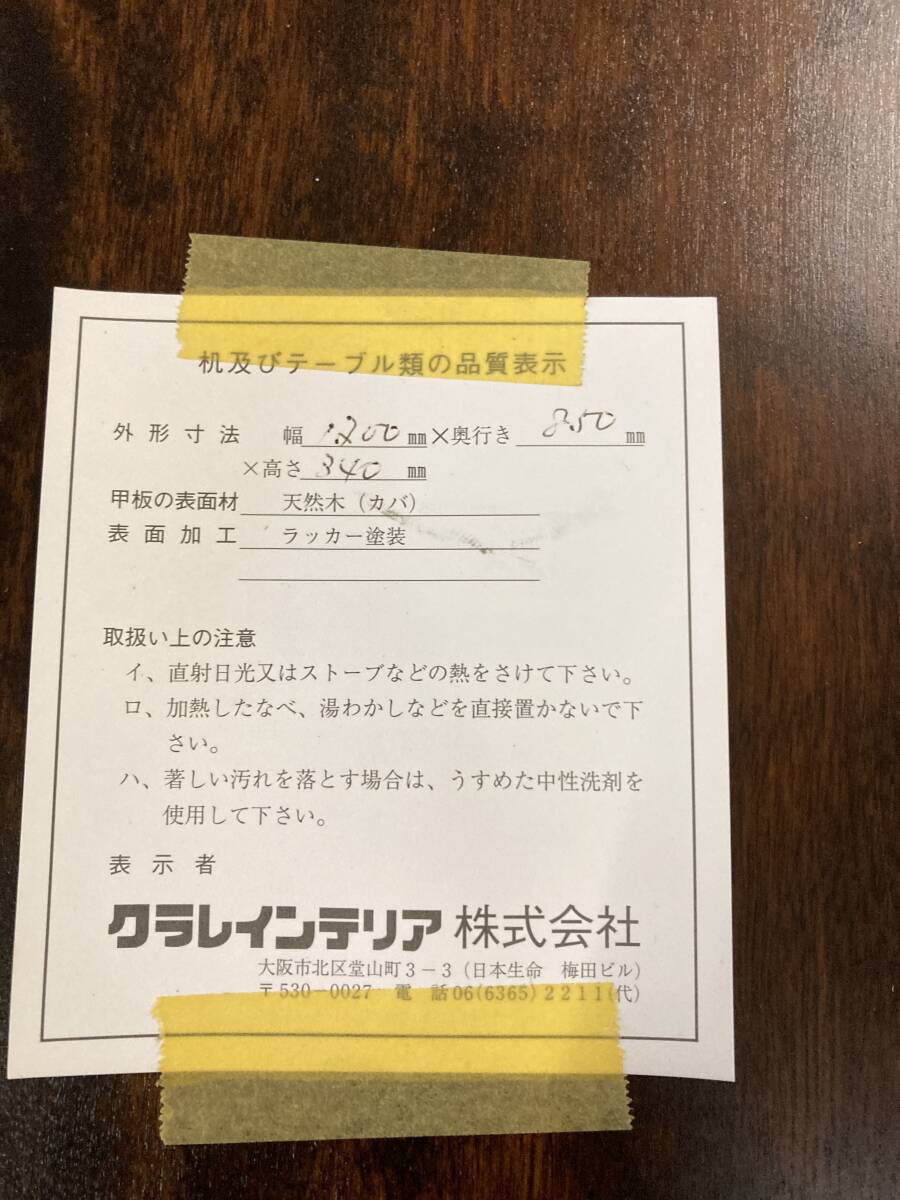 机及びテーブル類の品質表示
外形寸法 幅 1200 mm×奥行き 850 mm
×高さ 340 mm
甲板の表面材 天然木（カバ）
表面加工 ラッカー塗装
取扱い上の注意
イ、直射日光又はストーブなどの熱をさけて下さい。
ロ、加熱したなべ、湯わかしなどを直接置かないで下
さい。
ハ、著しい汚れを落とす場合は、うすめた中性洗剤を
使用して下さい。
表示者
クラレインテリア株式会社
大阪市北区堂山町３－３（日本生命 梅田ビル）
〒530－0027 電話06(6365)２２１１(代)